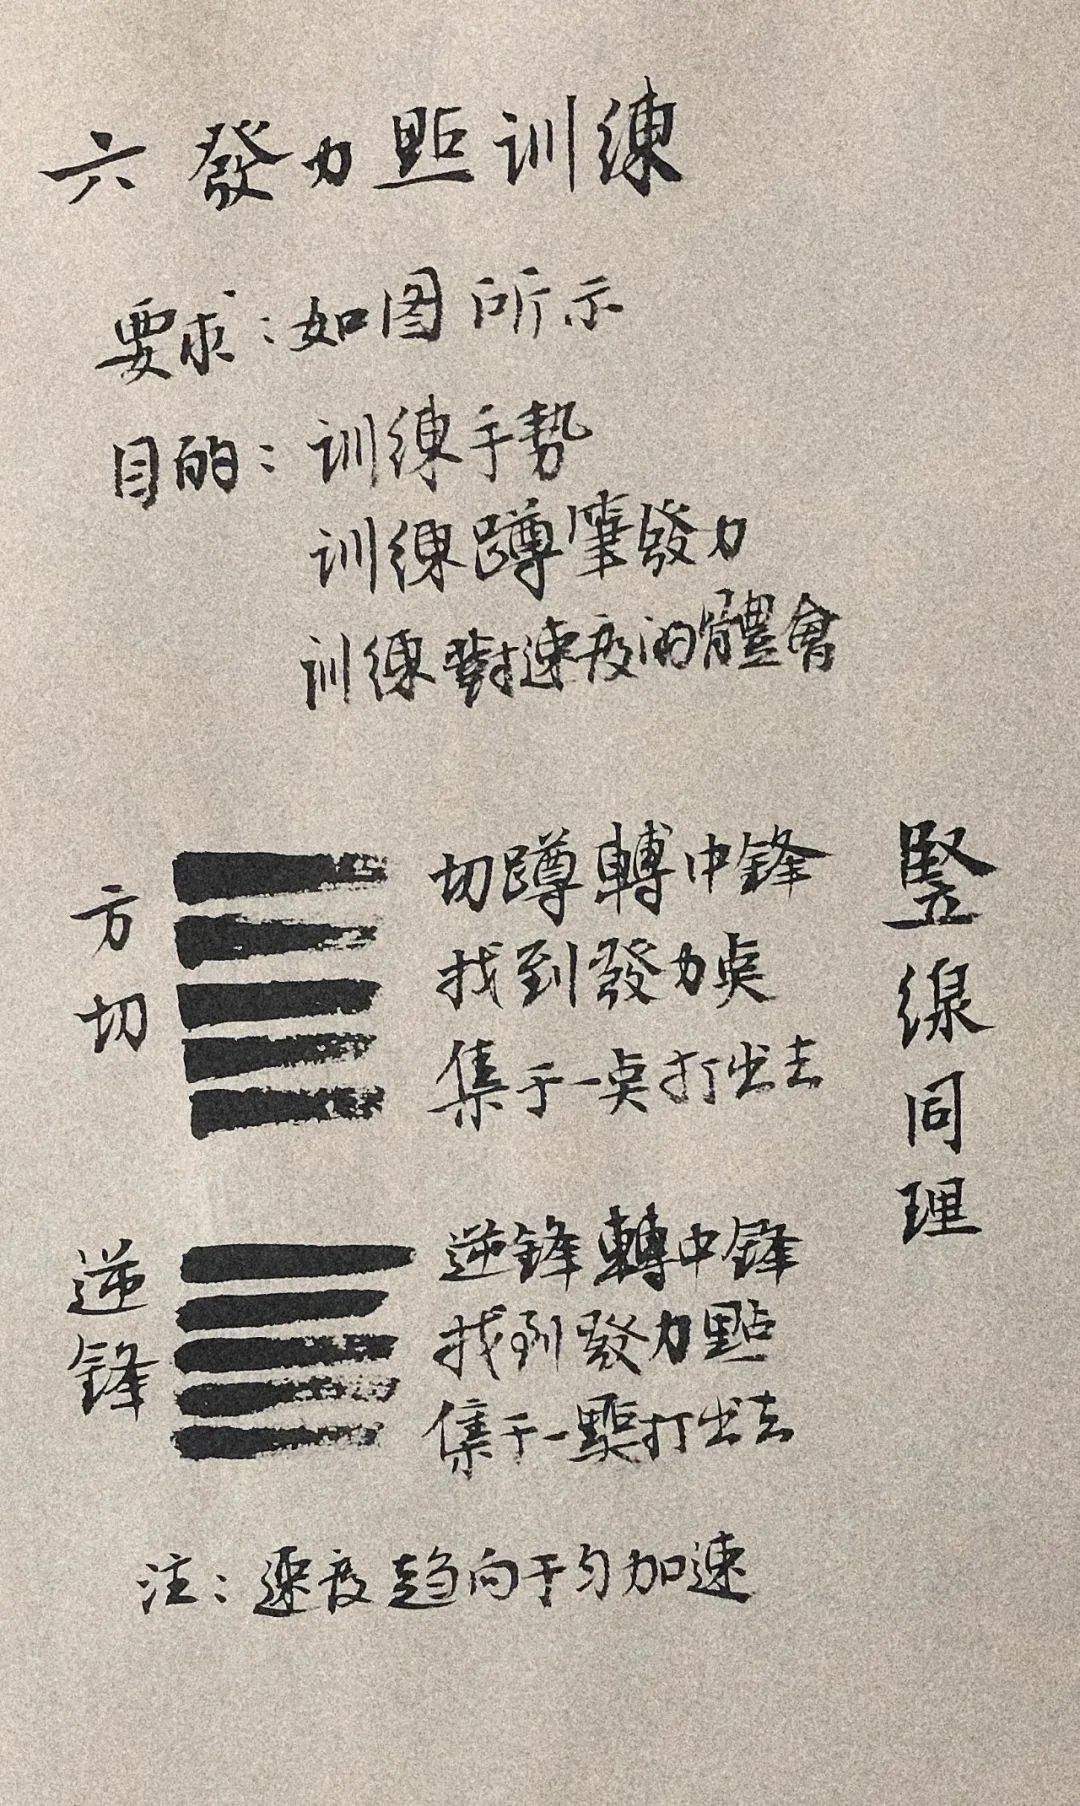 六 發力點訓練
要求：如图所示
目的：訓練手势
訓練蹲筆發力
訓練對速度的體會
方切
切蹲轉中鋒
找到發力点
集于一点打出去
逆鋒
逆鋒轉中鋒
找到發力點
集于一點打出去
竪線同理
注：速度趋向于匀加速